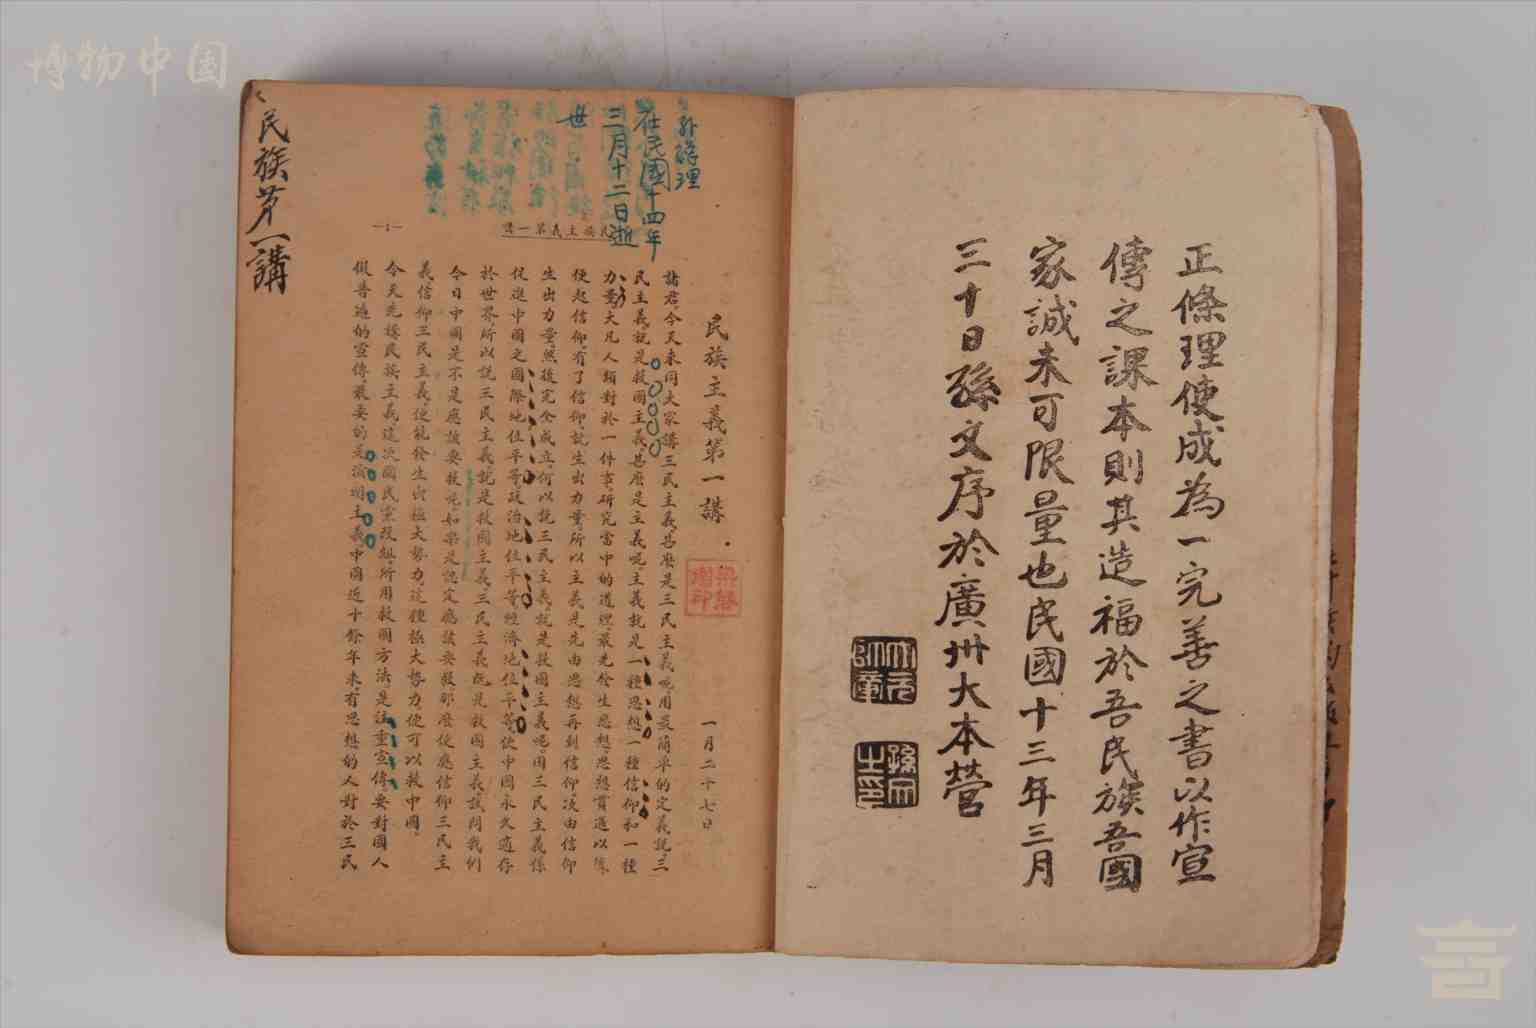 博物中国
正條理使成為一完善之書以作宣
傳之課本則其造福於吾民族吾國
家誠未可限量也民國十三年三月
三十日孫文序於廣州大本營
大元帥章
孫文之印
孫總理
在民國十四年
三月十二日逝
世
民族主義第一講
—1—
民族主義第一講
一月二十七日
諸君、今天來同大家講三民主義、甚麼是三民主義呢、用最簡單的定義說、三
民主義、就是救國主義、甚麼是主義呢、主義就是一種思想一種信仰和一種
力量、大凡人類對於一件事、研究當中的道理、最先發生思想、思想貫通以後、
便起信仰、有了信仰、就生出力量、所以主義是先由思想再到信仰、次由信仰
生出力量、然後完全成立、何以說三民主義、就是救國主義呢、因三民主義係
促進中國之國際地位平等、政治地位平等、經濟地位平等、使中國永久適存
於世界、所以說三民主義、就是救國主義、三民主義既是救國主義、試問我們
今日中國是不是應該要救呢、如果是認定應該要救、那麼便應信仰三民主
義、信仰三民主義、便能發生出極大勢力、這種極大勢力、便可以救中國、
今天先講民族主義、這次國民黨改組、所用救國方法、是注重宣傳、要對國人
做普遍的宣傳、最要的是演明主義、中國近十餘年來、有思想的人對於三民
民族第一講